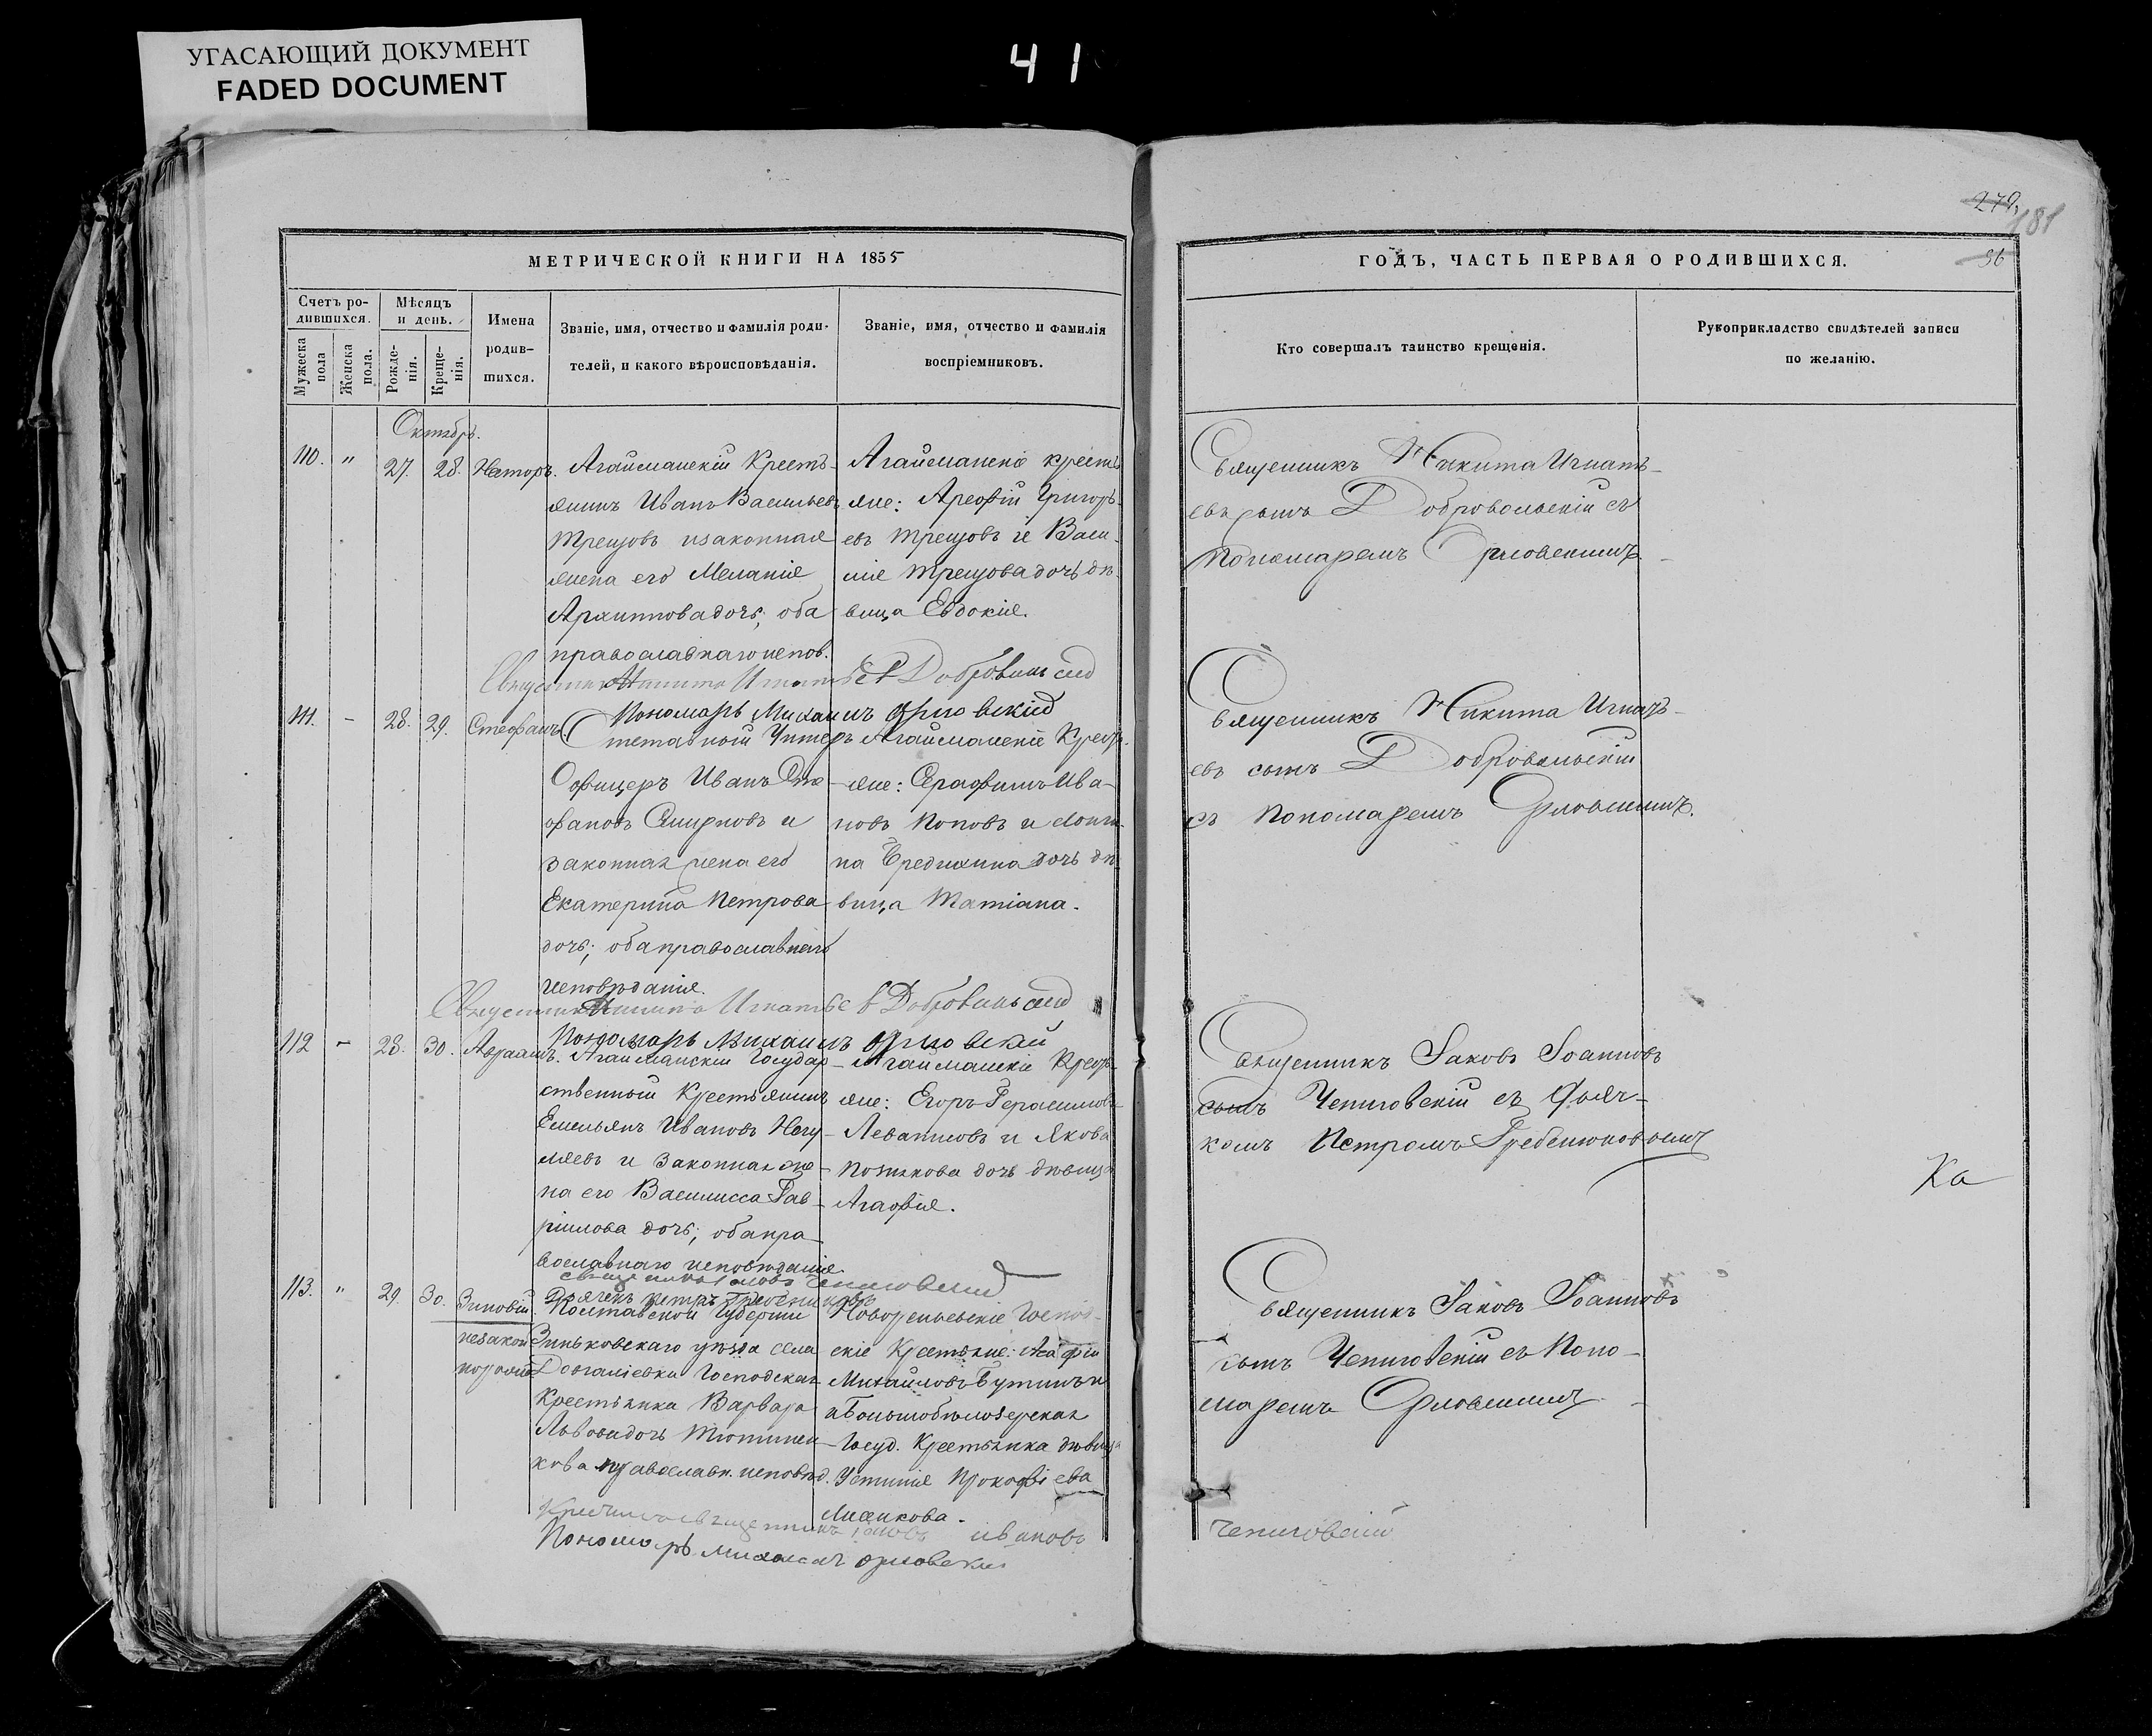 УГАСАЮЩИЙ ДОКУМЕНТ
FADED DOCUMENT
41
279.
181
36
МЕТРИЧЕСКОЙ КНИГИ НА 1855
ГОДЪ, ЧАСТЬ ПЕРВАЯ О РОДИВШИХСЯ.
Счетъ ро-
дившихся.
Мужеска пола
Женска пола.
Мѣсяцъ
и день.
Рожде-
нія.
Креще-
нія.
Имена
родив-
шихся.
Званіе, имя, отчество и фамилія роди-
телей, и какого вѣроисповѣданія.
Званіе, имя, отчество и фамилія
воспріемниковъ.
Кто совершалъ таинство крещенія.
Рукоприкладство свидѣтелей записи
по желанію.
Октябрь.
110. " 27. 28. Несторъ.
Агайманскій Кресть-
янинъ Иванъ Васильевъ
Трещовъ и законная
жена его Меланія
Архиппова дочь; оба
православнаго испов.
Агайманскіе кресть
яне: Арефій Григорь-
евъ Трещовъ и Васи-
лія Трещова дочь дѣ-
вица Евдокія.
Священникъ Никита Игнать-
евъ сынъ Добровольскій съ
Пономаремъ Орловскимъ
Священникъ Никита Игнатьевъ Добровольскій
Пономарь Михаилъ Орловскій
111. - 28. 29. Стефанъ.
Отставной Унтеръ
Офицеръ Иванъ Сте-
фановъ Смирновъ и
законная жена его
Екатерина Петрова
дочь; оба православнаго
исповѣданія.
Агайманскіе Кресть-
яне: Серафимъ Ива-
новъ Поповъ и Логи-
на Бредихина дочь дѣ-
вица Татіана.
Священникъ Никита Игнать-
евъ сынъ Добровольскій
съ Пономаремъ Орловскимъ.
Священникъ Никита Игнатьевъ Добровольскій
Пономарь Михаилъ Орловскій
112 - 28. 30. Авраамъ.
Агайманскій Государ-
ственный Крестьянинъ
Емельянъ Ивановъ
и законная же-
на его Василисса Гав-
ріилова дочь; оба пра-
вославнаго исповѣданія.
Агайманскіе Кресть-
яне: Егоръ Герасимовъ
и Якова
дочь дѣвица
Агафія.
Священникъ Іаковъ Іоанновъ
сынъ Чепиговскій съ Дьяч-
комъ Петромъ Гребенюковымъ
Ка
Священникъ Іаковъ Чепиговский
Дьячекъ Петръ Гребенюковъ
113. " 29. 30. Зиновій
незакон
норожд
Полтавской Губерніи
Зиньковскаго уѣзда села
Довгаліевки Господская
Крестьянка Варвара
Львова дочь
православн. исповѣд.
Господ-
скіе Крестьяне:
Михайловъ Бутинъ и
Большобѣлозерская
Госуд. Крестьянка дѣвица
Устинія Прокофіева
Лихикова.
Священникъ Іаковъ Іоанновъ
сынъ Чепиговскій съ Поно-
маремъ Орловскимъ
священникъ Іаковъ Ивановъ
Чепиговский
Пономарь Михаилъ Орловскій